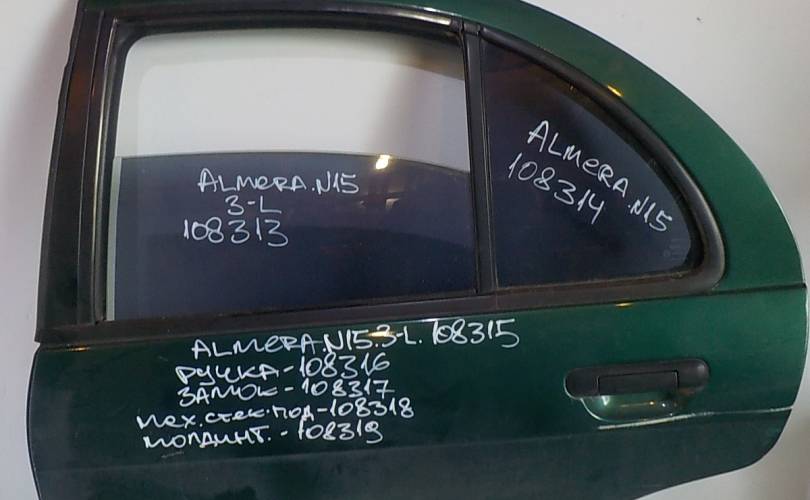 ALMERA.N15
3-L
108313
ALMERA.N15
108314
ALMERA.N15.3-L.108315
РУЧКА-108316
ЗАМОК-108317
мех.стек.под-108318
молдинг.-108319